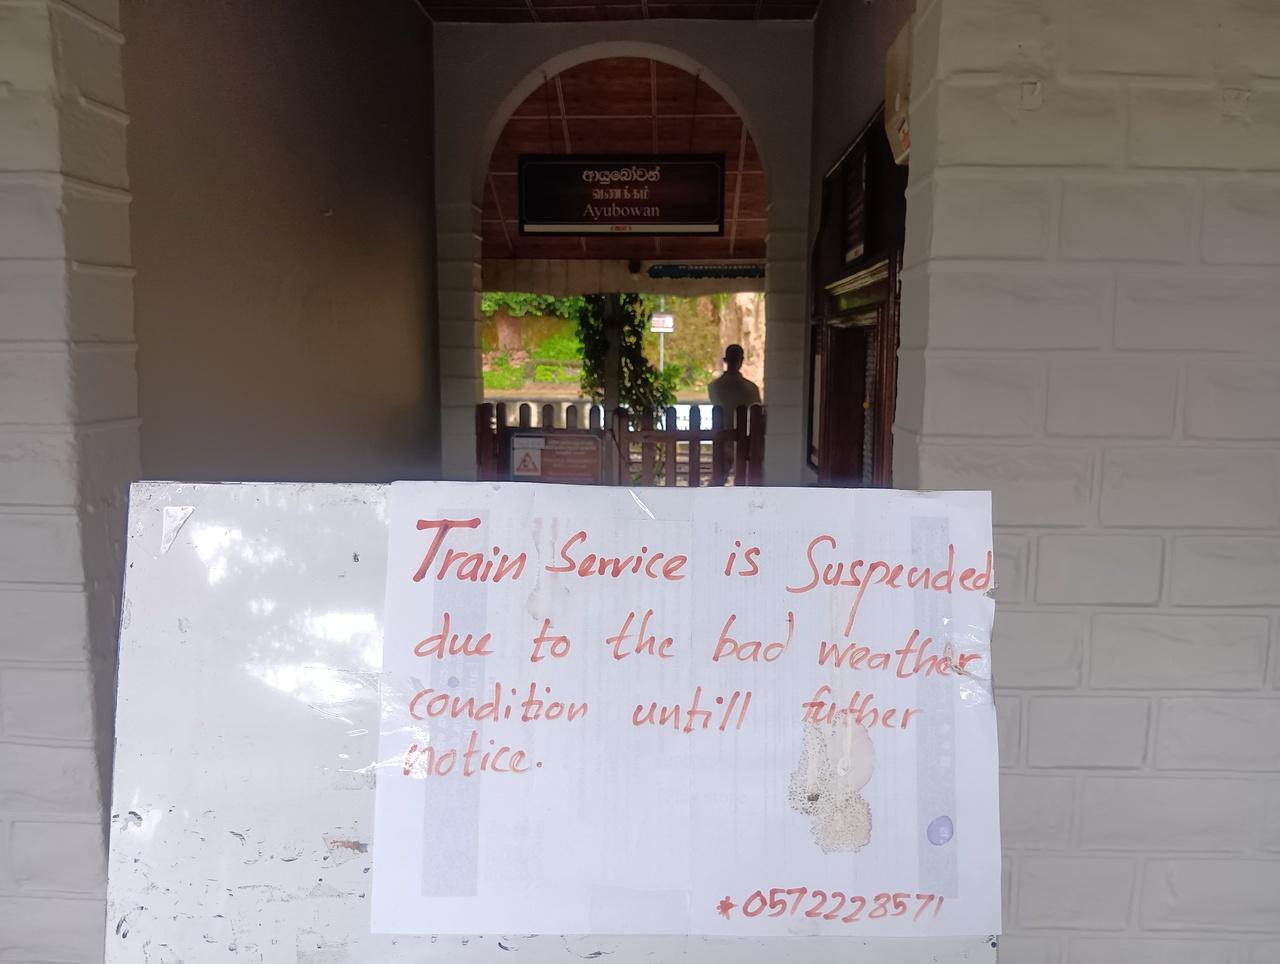 ආයුබෝවන්
வணக்கம்
Ayubowan
Train Service is Suspended
due to the bad weather
condition untill futher
notice.
*0572228571